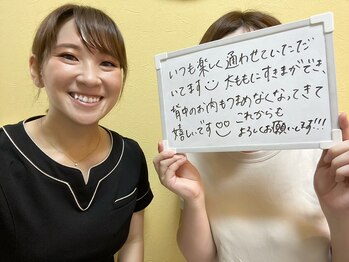 いつも楽しく通わせていただ
いてます 太ももにすきまができ、
背中のお肉もつまめなくなってきて
嬉しいです これからも
よろしくお願いします!!!